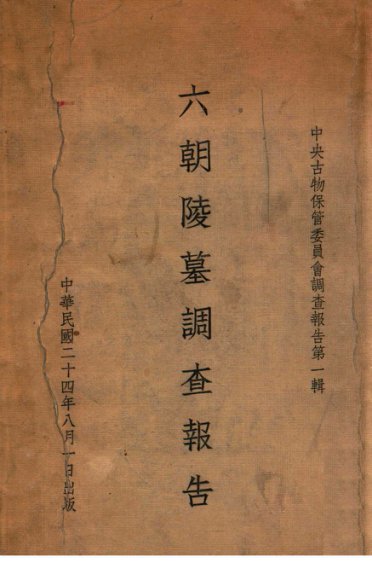 中央古物保管委員會調查報告第一輯
六朝陵墓調查報告
中華民國二十四年八月一日出版